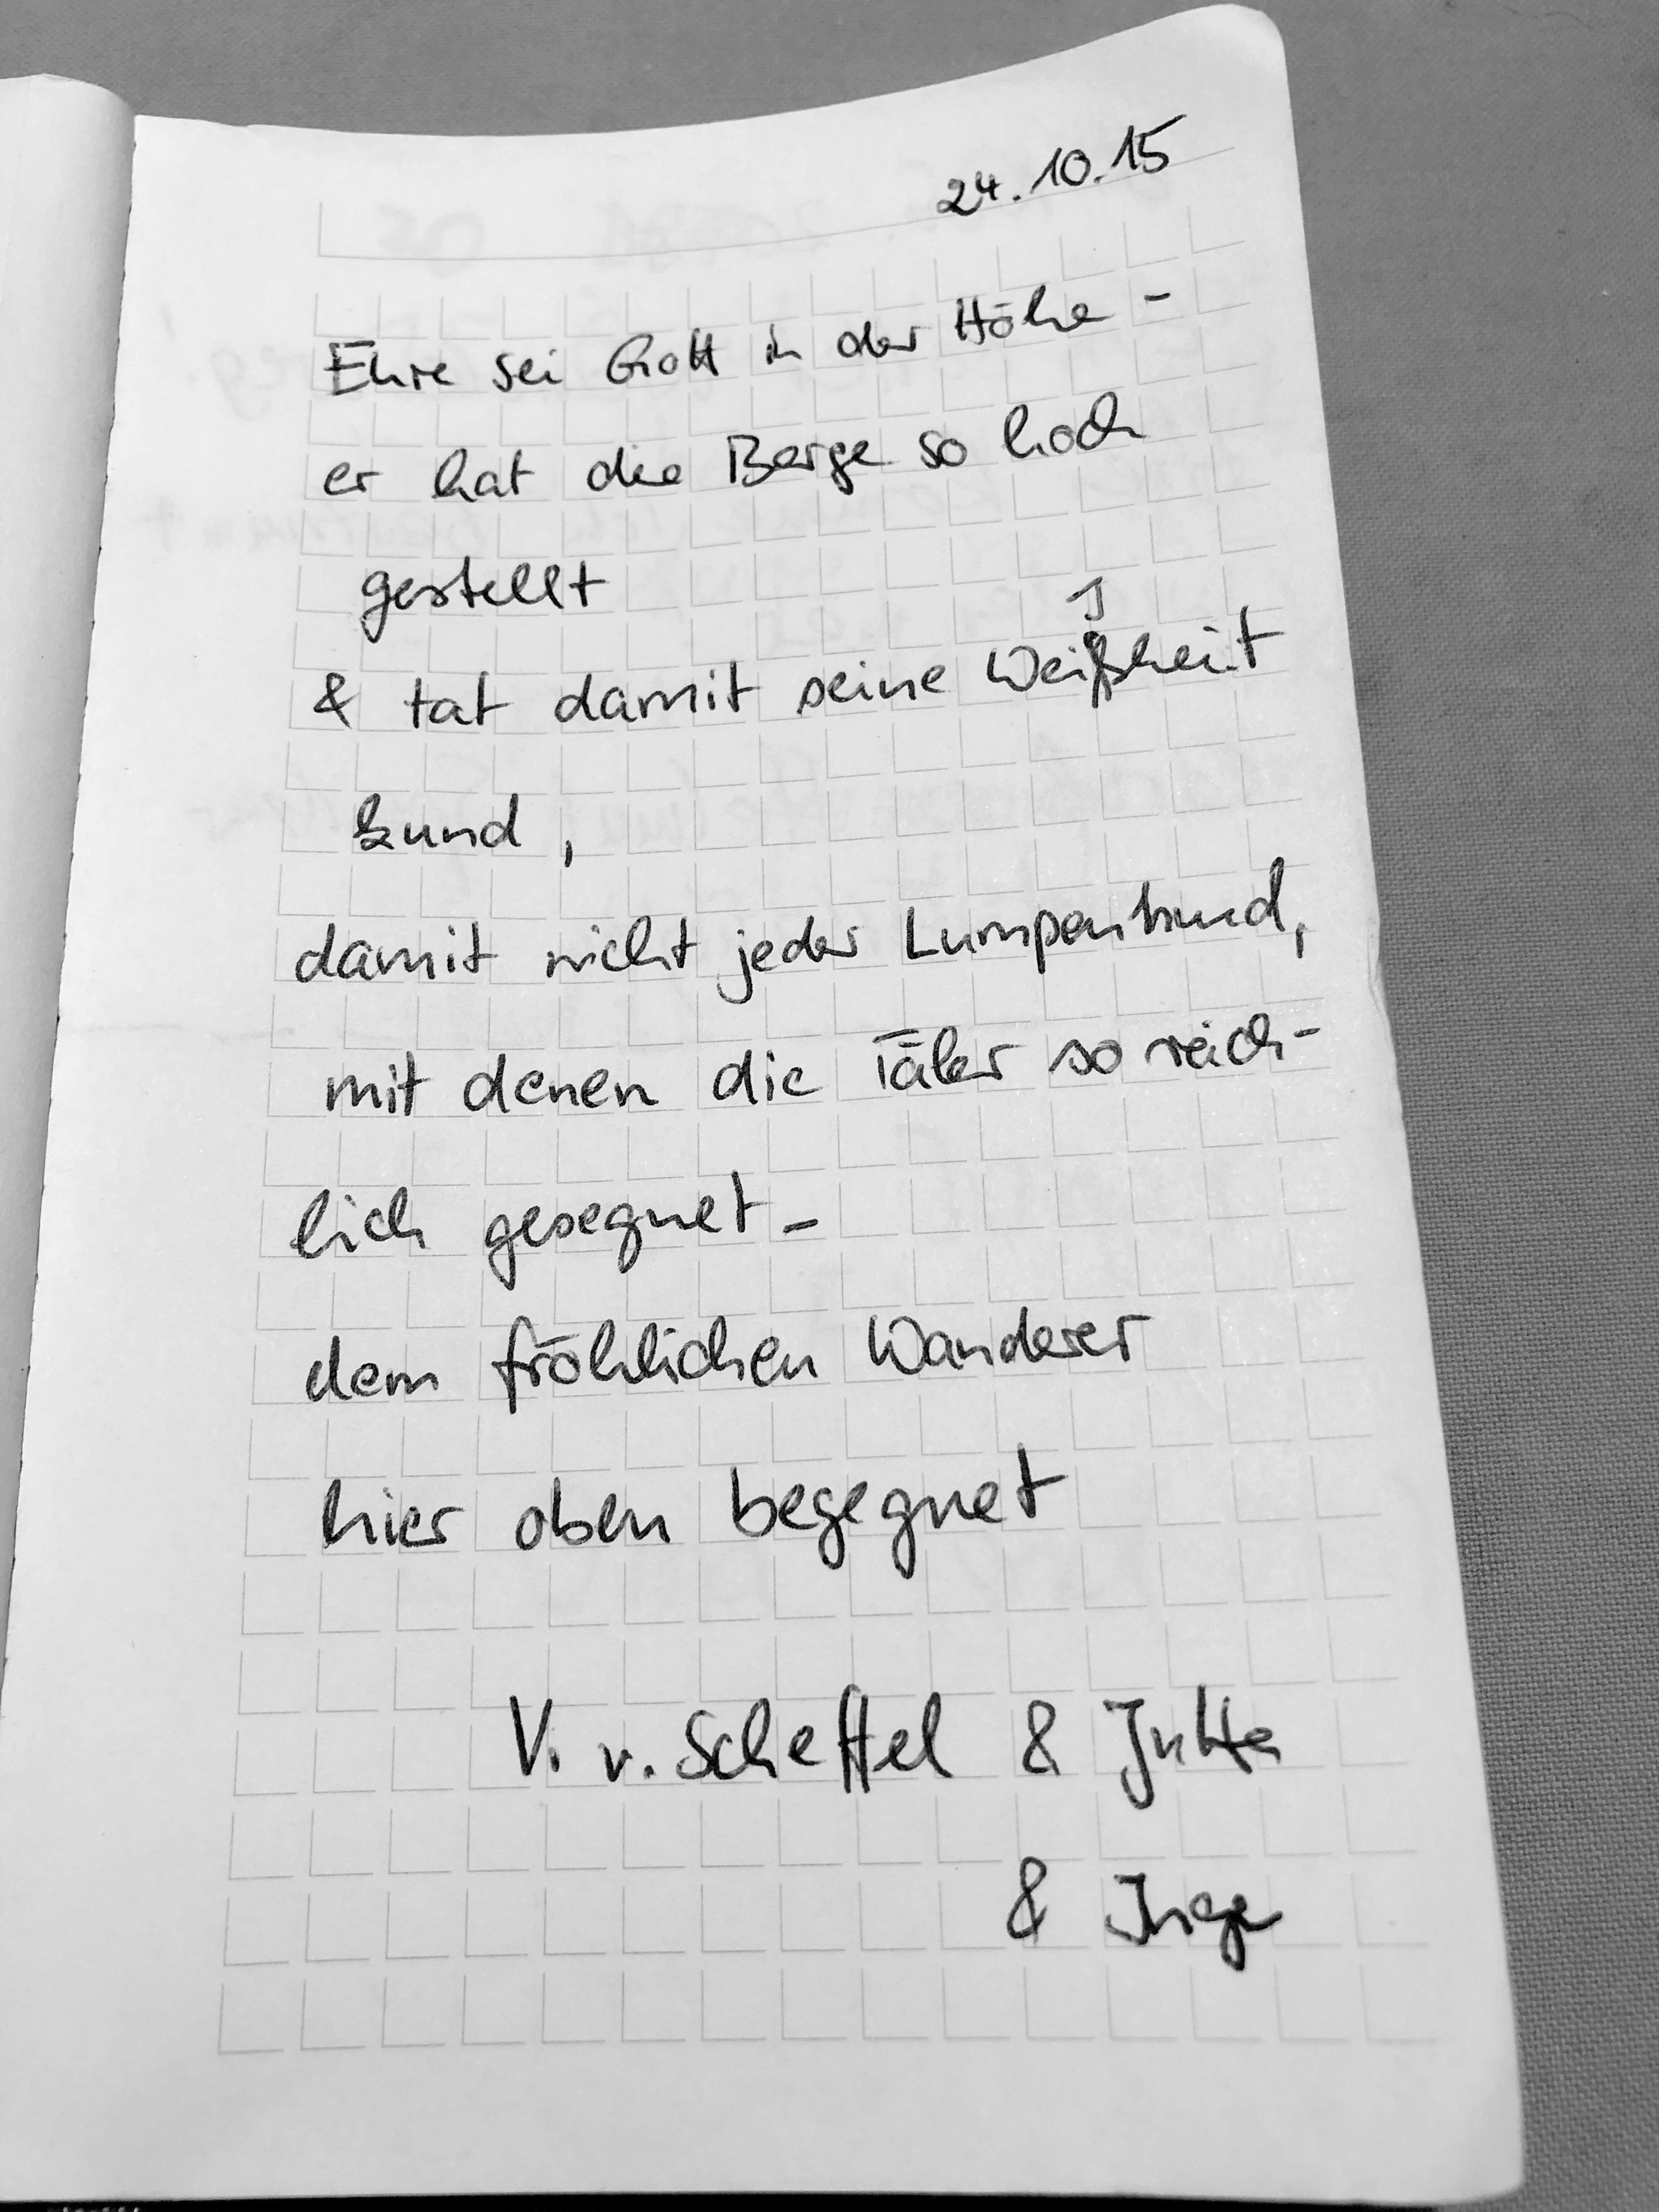 24.10.15
Ehre sei Gott in der Höhe -
er hat die Berge so hoch
gestellt
& tat damit seine Weisheit
kund,
damit nicht jeder Lumpenhund,
mit denen die Täler so reich-
lich gesegnet -
dem fröhlichen Wanderer
hier oben begegnet
V. v. Scheffel & Jutta
& Inge